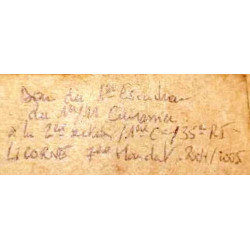 Don du 1er Escadron
du 1er/11 Cuirassier
à la 2ème section / 1ère Cie / 35e RI
LICORNE 7ème Mandat. 2004/2005